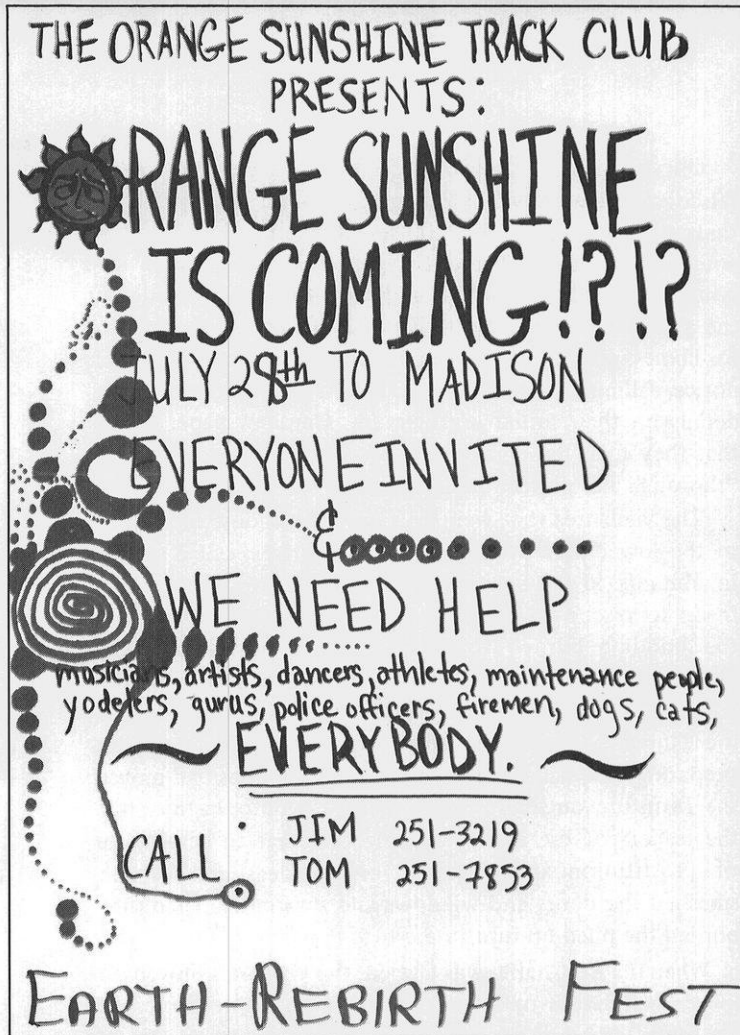 THE ORANGE SUNSHINE TRACK CLUB
PRESENTS:
RANGE SUNSHINE
IS COMING!?!?
JULY 28th TO MADISON
EVERYONE INVITED
&
WE NEED HELP
musicians, artists, dancers, athletes, maintenance people,
yodelers, gurus, police officers, firemen, dogs, cats,
~ EVERYBODY. ~
CALL: JIM 251-3219
TOM 251-7853
EARTH-REBIRTH FEST